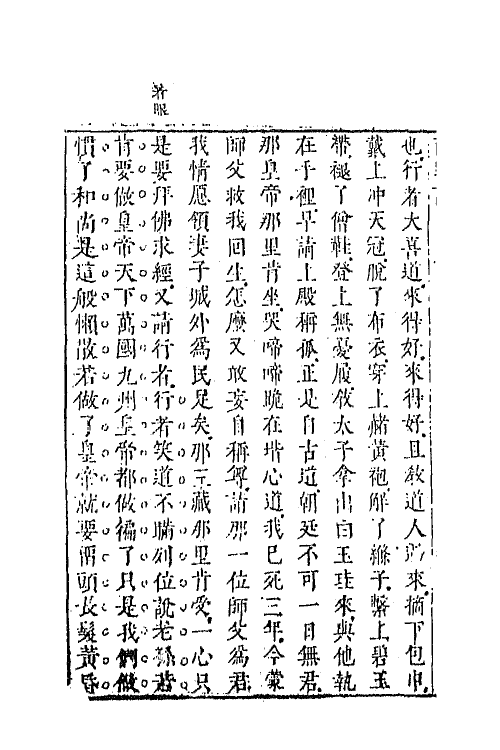 着眼
也行者大喜道來得好來得好且教道人過來摘下包巾
戴上冲天冠脫了布衣穿上赭黃袍解了縧子繫上碧玉
帶褪了僧鞋登上無憂履教太子拿出白玉珪來與他執
在手裡早請上殿稱孤正是自古道朝廷不可一日無君
那皇帝那里肯坐哭啼啼跪在堦心道我已死三年今蒙
師父救我回生怎麼又敢妄自稱尊請那一位師父爲君
我情愿領妻子城外爲民足矣那三藏那里肯受一心只
是要拜佛求經又請行者行者笑道不瞞列位說老孫若
肯要做皇帝天下萬國九州皇帝都做徧了只是我們做
慣了和尚是這般懶散若做了皇帝就要留頭長髮黃昏